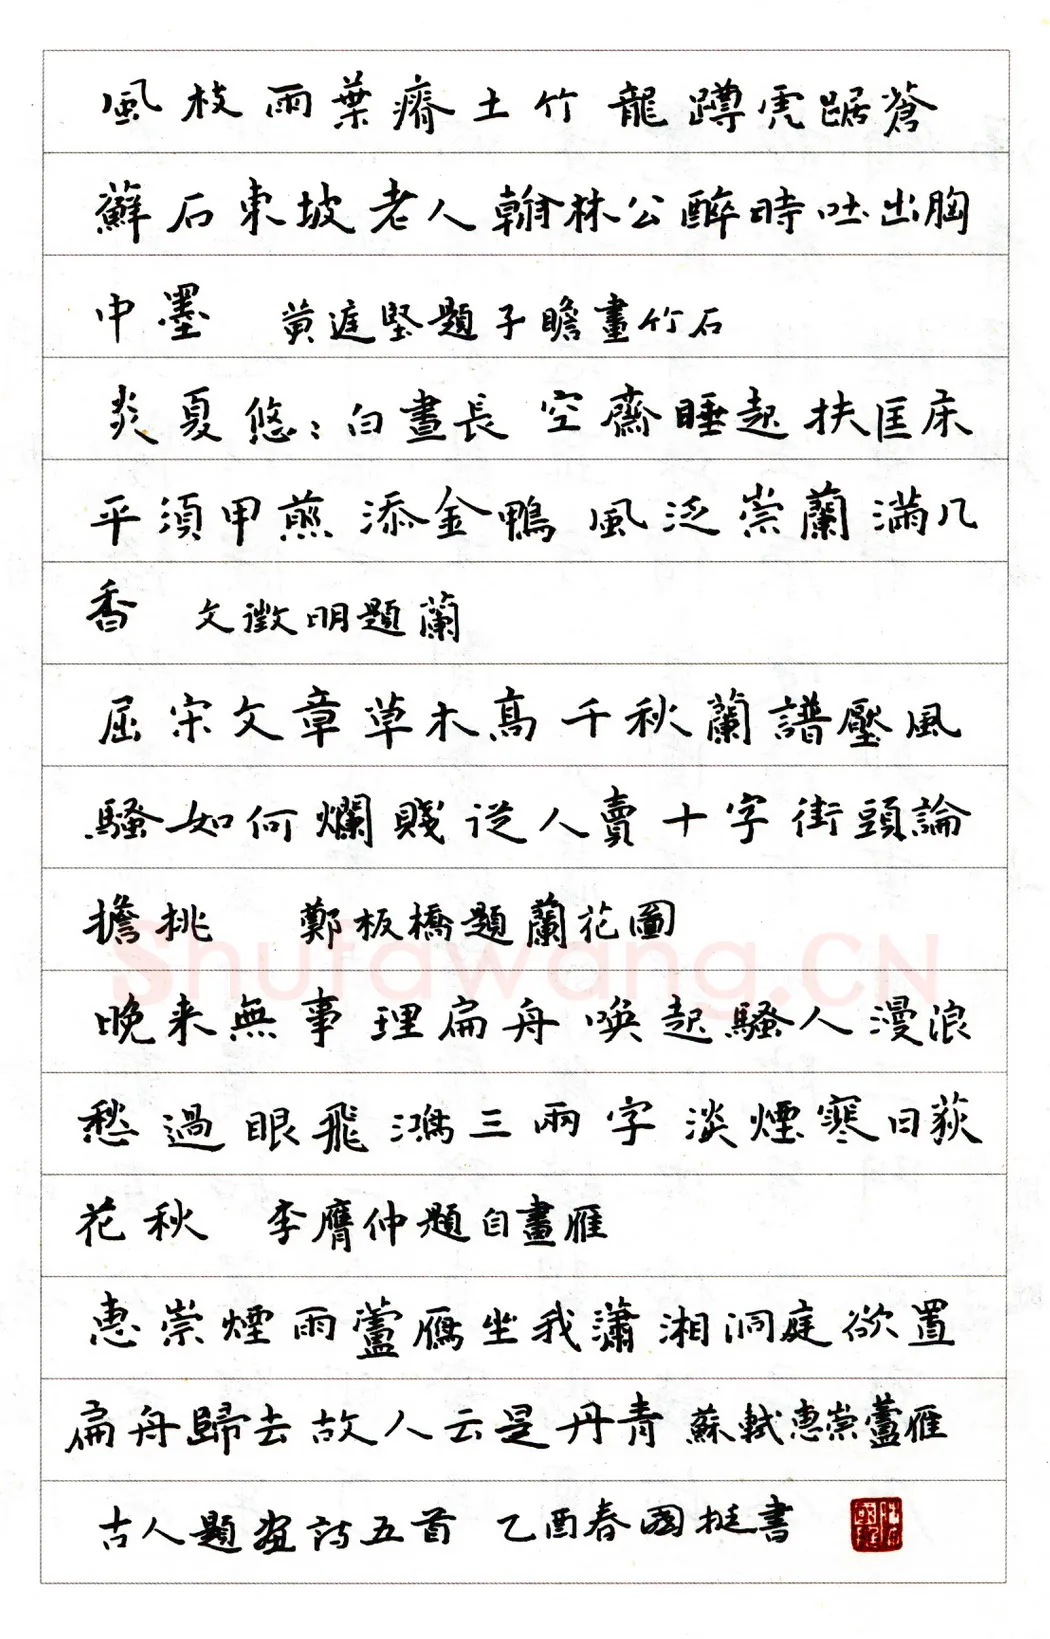 風枝雨葉瘠土竹龍蹲虎踞蒼
蘚石東坡老人翰林公醉時吐出胸
中墨 黄庭堅題子瞻畫竹石
炎夏悠:白晝長空齋睡起扶匡床
平須甲煎添金鴨風泛崇蘭滿几
香 文徵明題蘭
屈宋文章草木高千秋蘭譜壓風
騷如何爛賤從人賣十字街頭論
擔挑 鄭板橋題蘭花圖
晚来無事理扁舟喚起騷人漫浪
愁過眼飛鴻三兩字淡煙寒日荻
花秋 李膺仲題自畫雁
惠崇煙雨蘆雁坐我瀟湘洞庭欲置
扁舟歸去故人云是丹青 蘇軾惠崇蘆雁
古人題畫詩五首 乙酉春國挺書
Shufawang.CN